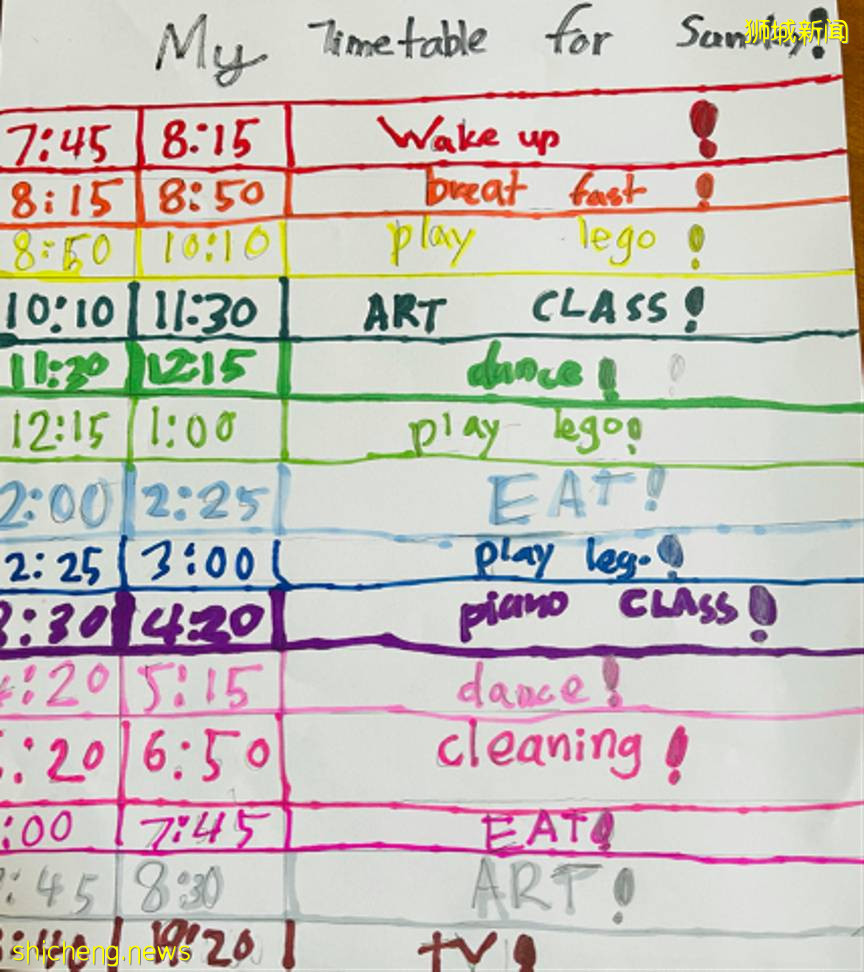 My Timetable for Sunday!
狮城新闻
7:45 8:15 Wake up !
8:15 8:50 breat fast !
8:50 10:10 play lego !
10:10 11:30 ART CLASS !
11:30 12:15 dance !
12:15 1:00 play lego!
2:00 2:25 EAT!
2:25 3:00 play lego!
3:30 4:20 piano CLASS!
:20 5:15 dance!
:20 6:50 cleaning !
:00 7:45 EAT!
:45 8:30 ART!
TV!
shicheng.news